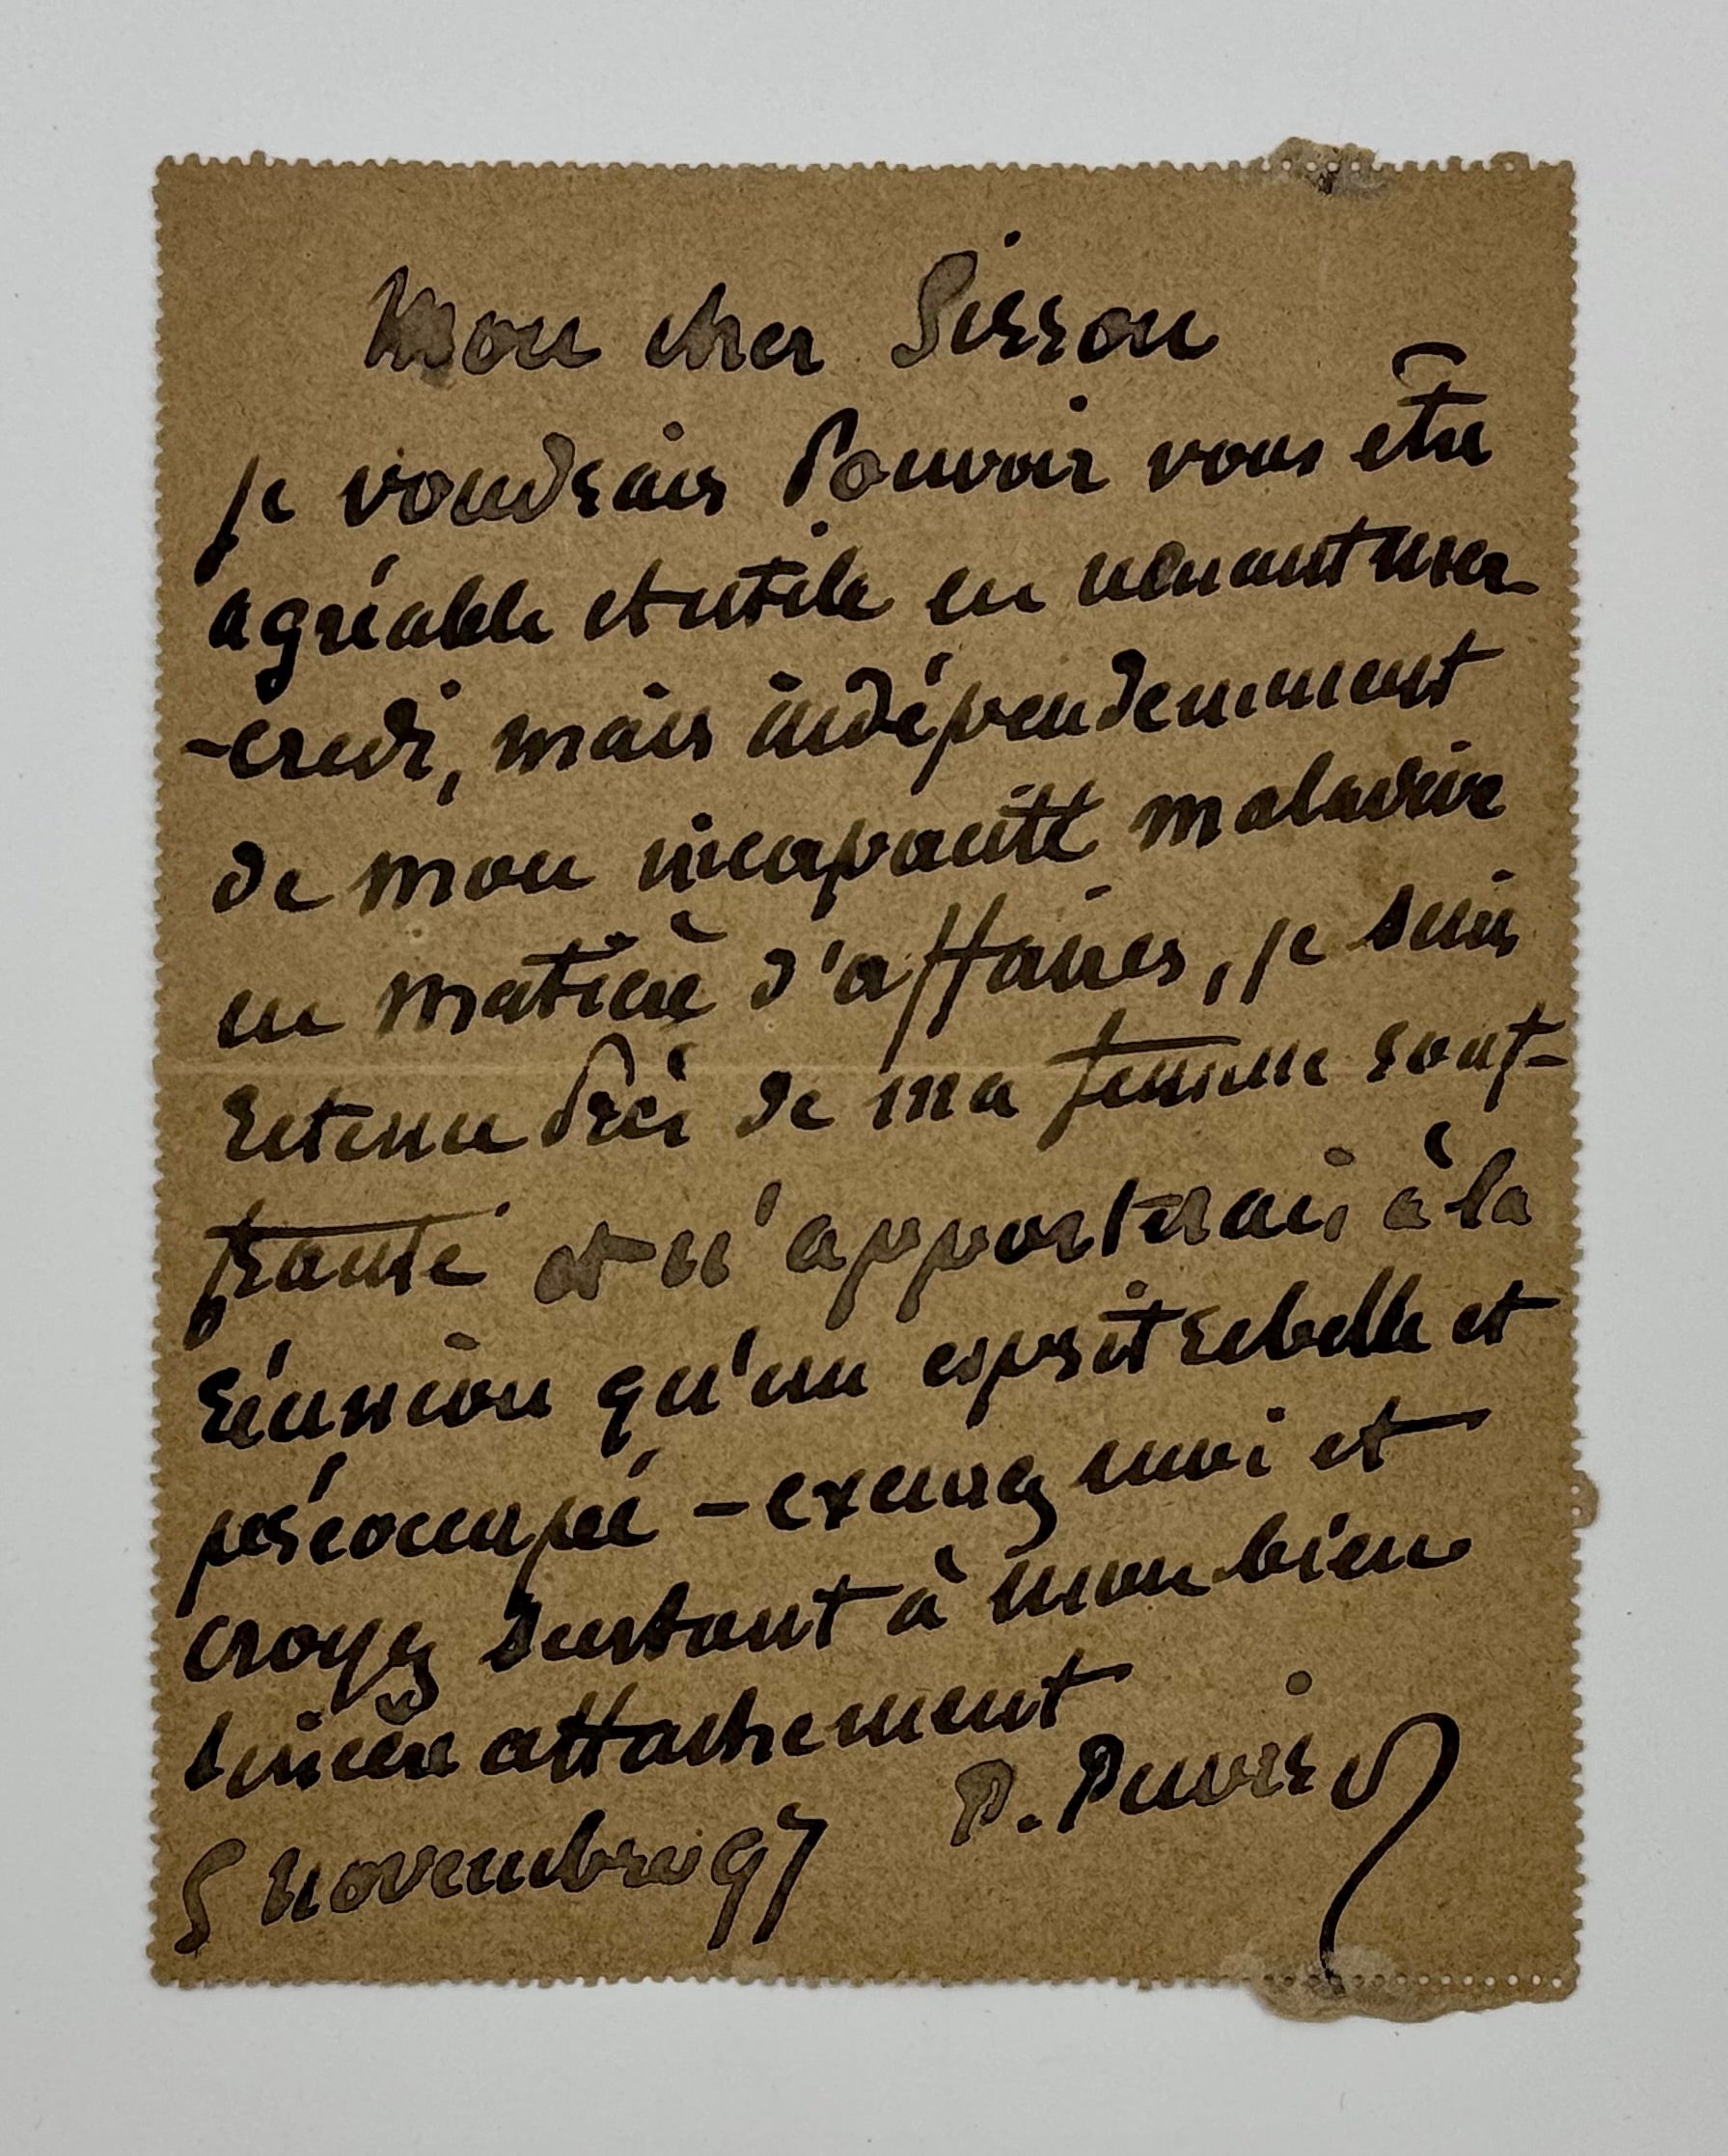 Mon cher Sisson
je voudrais pouvoir vous être
agréable et utile en venant mer-
-credi, mais indépendemment
de mon incapacité maladive
en matière d'affaires, je suis
retenu près de ma femme souf-
frante et n'apporterais à la
réunion qu'un esprit rebelle et
préoccupé – excusez moi et
croyez surtout à mon bien
sincère attachement
P. Puvis
5 novembre 97